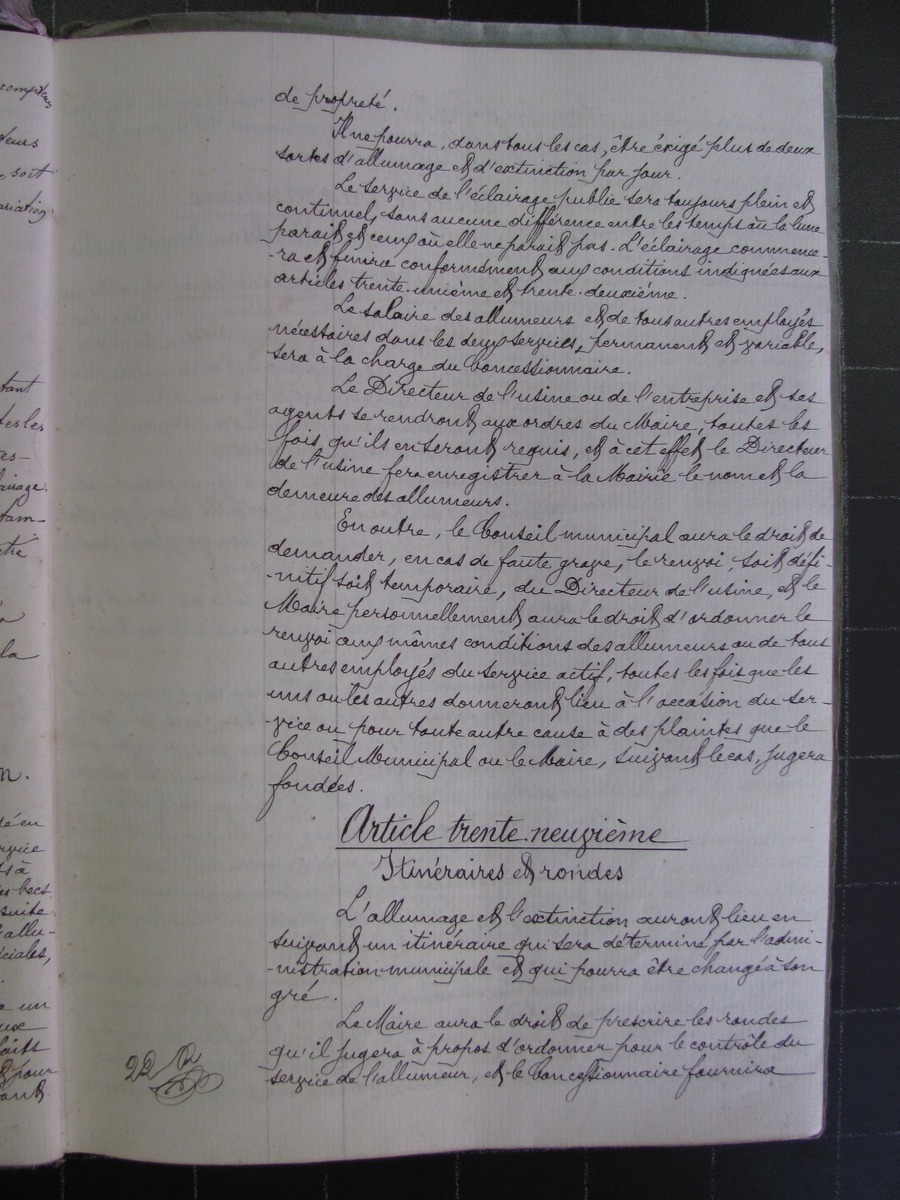 de propreté.
Il ne pourra, dans tous les cas, être éxigé plus de deux
sortes d'allumage et d'extinction par jour.
Le service de l'éclairage public sera toujours plein et
continuel, sans aucune différence entre les temps où la lune
parait et ceux où elle ne parait pas. L'éclairage commence-
-ra et finira conformément aux conditions indiquées aux
articles trente-unième et trente-deuxième.
Le salaire des allumeurs et de tous autres employés
nécessaires dans les deux services, permanent et variable,
sera à la charge du Concessionnaire.
Le Directeur de l'usine ou de l'entreprise et ses
agents se rendront aux ordres du Maire, toutes les
fois qu'ils en seront requis, et à cet effet le Directeur
de l'usine fera enregistrer à la Mairie le nom et la
demeure des allumeurs.
En outre, le Conseil municipal aura le droit de
demander, en cas de faute grave, le renvoi, soit défi-
-nitif soit temporaire, du Directeur de l'usine, et le
Maire personnellement aura le droit d'ordonner le
renvoi aux mêmes conditions des allumeurs ou de tous
autres employés du service actif, toutes les fois que les
uns ou les autres donneront lieu à l'occasion du ser-
-vice ou pour toute autre cause à des plaintes que le
Conseil Municipal ou le Maire, suivant le cas, jugera
fondées.
Article trente-neuvième
Itinéraires et rondes
L'allumage et l'extinction auront lieu en
suivant un itinéraire qui sera déterminé par l'admi-
-nistration municipale et qui pourra être changé à son
gré.
Le Maire aura le droit de prescrire les rondes
qu'il jugera à propos d'ordonner pour le contrôle du
service de l'allumeur, et le Concessionnaire fournira
22